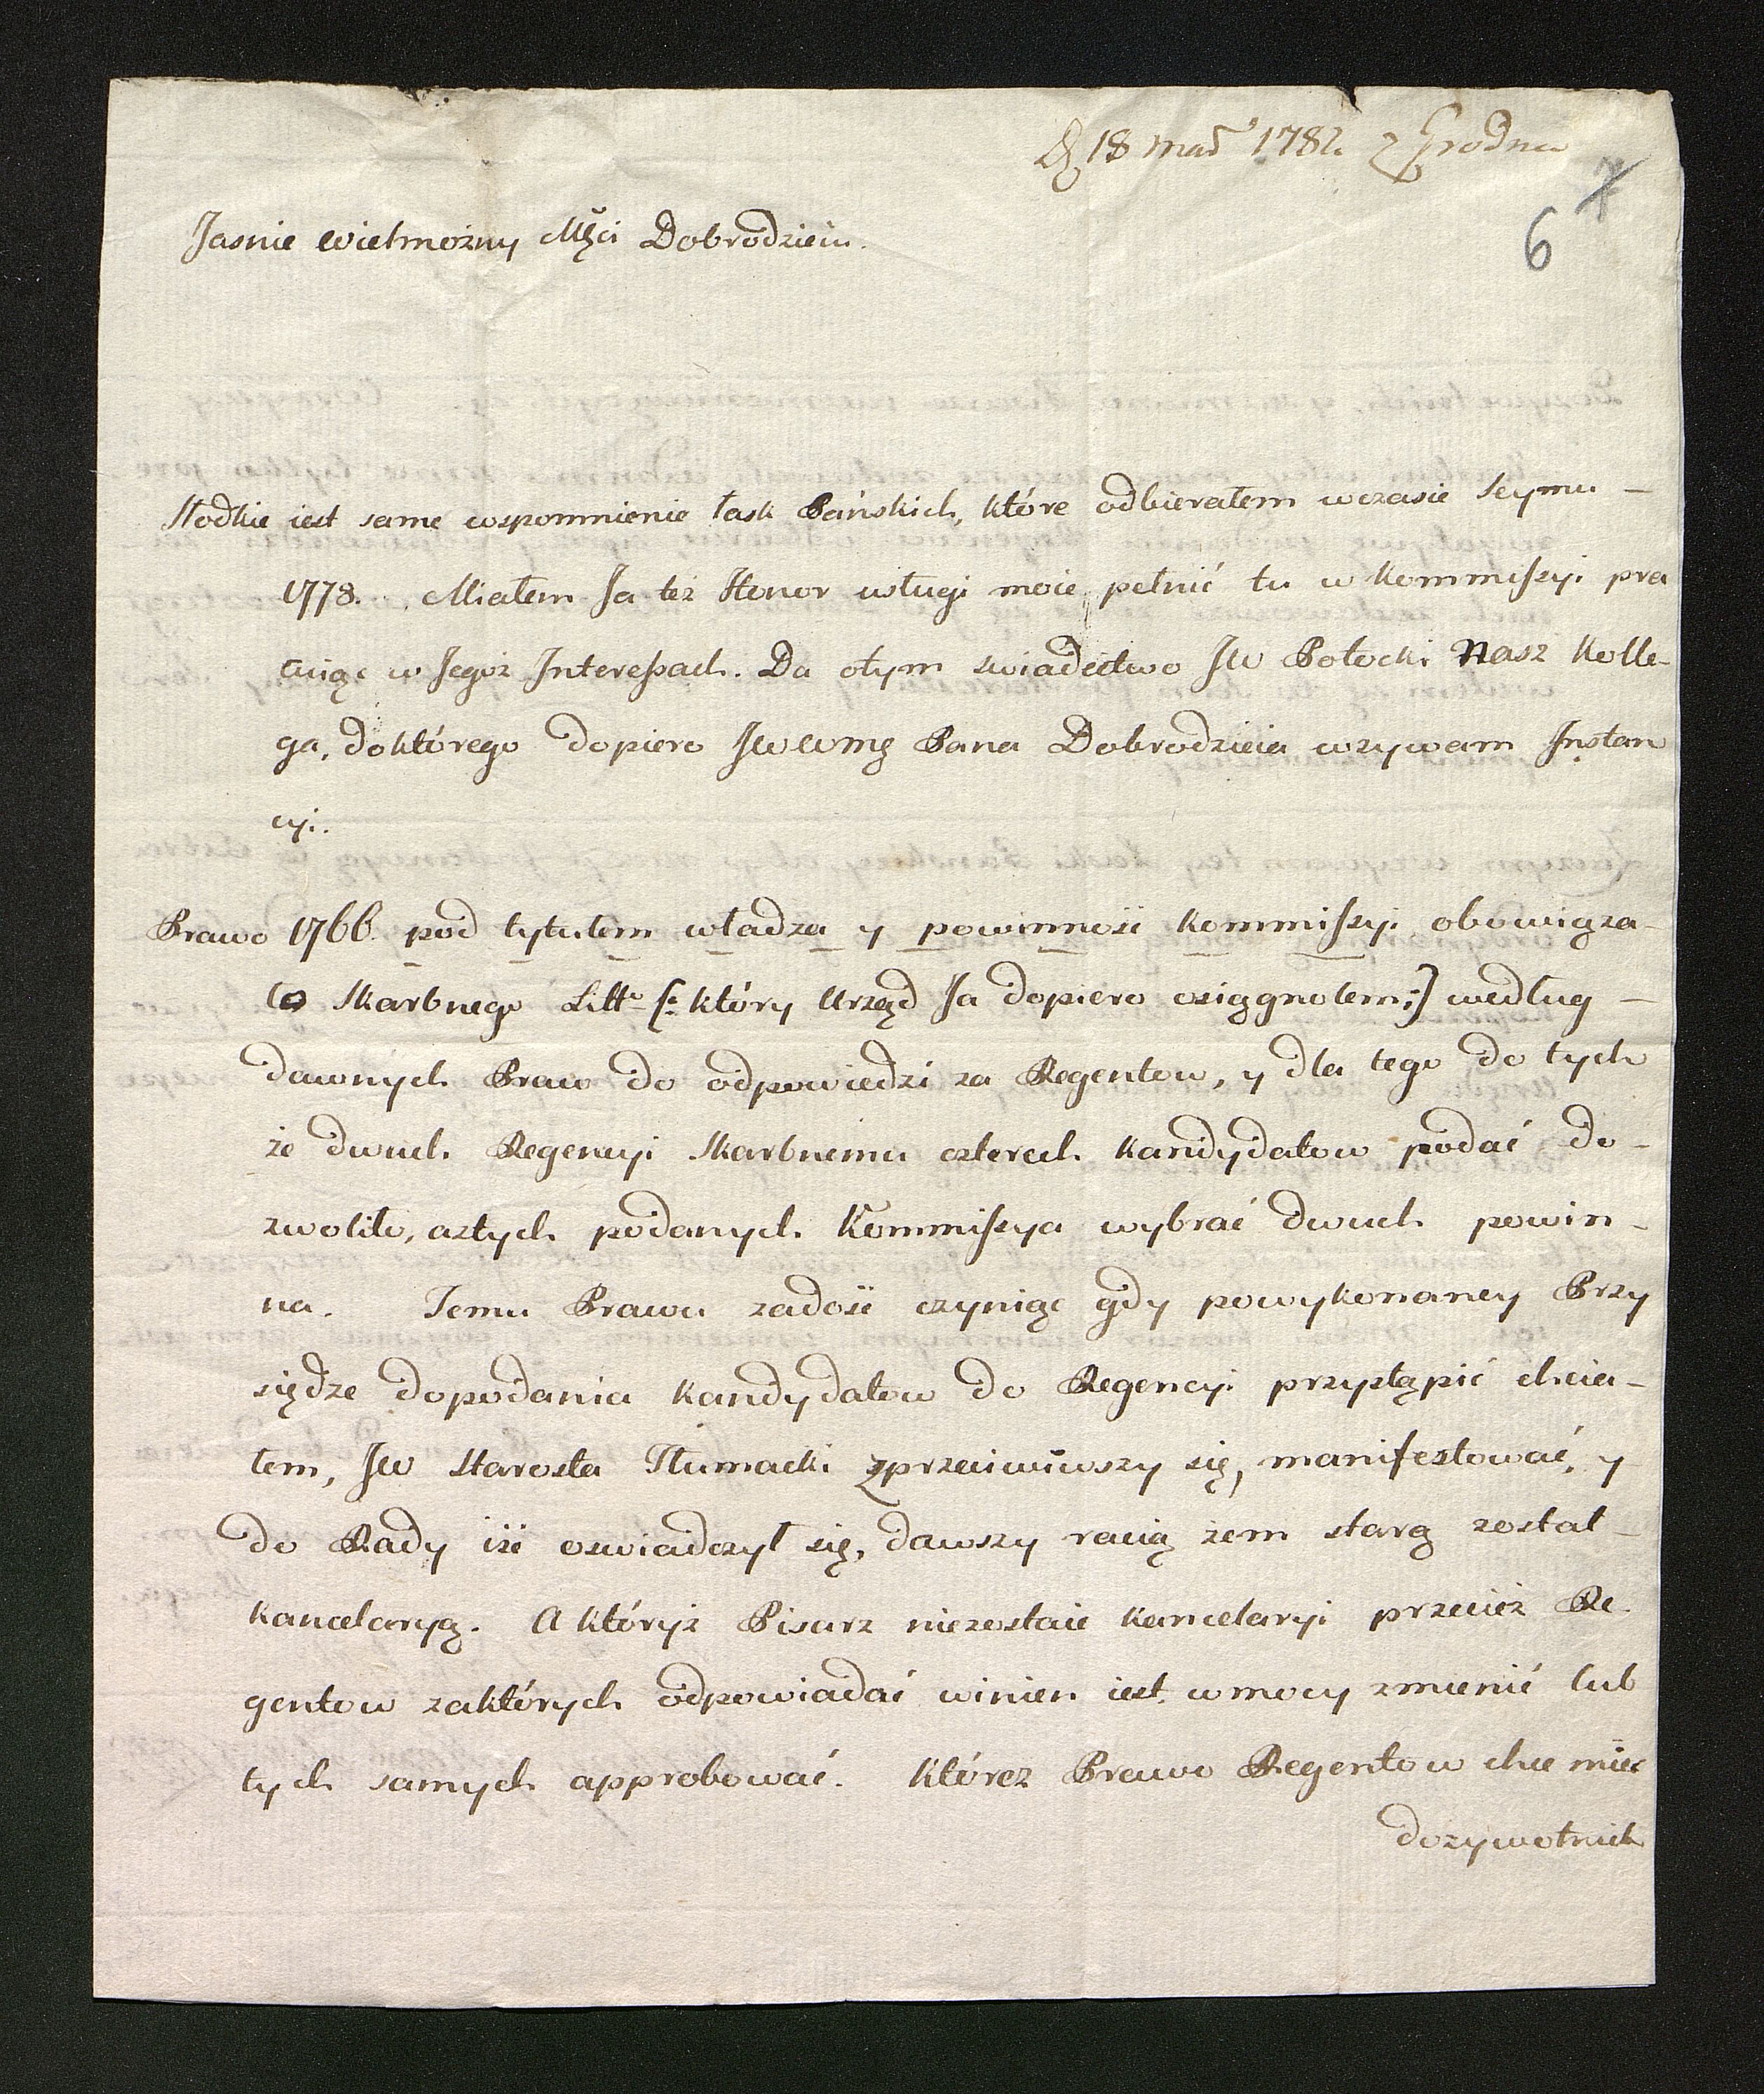 D 18 Mai 1782 z Grodna
7
6
Jasnie Wielmożny Mści Dobrodzieiu.
Słodkie iest same wspomnienie łask Pańskich, które odbierałem wczasie Seymu –
1778. Miałem Ja też Honor usługi moie pełnić tu w Kommissyi pra
cuiąc w Jegoż Interessach. Da otym swiadectwo JW Potocki Nasz Kolle-
ga, doktórego dopiero JWWMę Pana Dobrodzieia wzywam Instan
cyi.
Prawo 1766. pod tytułem władza y powinność Kommissyi obowiąza-
ło Skarbnego Litto [: który Urząd Ja dopiero osiągnołem :] według –
dawnych Praw do odpowiedzi za Regentow, y dla tego do tych
że dwuch Regencyi Skarbnemu czterech kandydatow podać do-
zwoliło, aztych podanych Kommissya wybrać dwuch powin-
na. Temu Prawu zadość czyniąc gdy powykonaney Przy
siędze dopodania kandydatow do Regencyi przystąpić chcia-
łem, JW Starosta Tłumacki zprzeciwiwszy się, manifestować, y
do Rady iść oswiadczył się, dawszy racią żem starą zostal –
kancelaryą. A któryż Pisarz niezostaie kancelaryi przecież Re-
gentow zaktórych odpowiadać winien iest wmocy zmienić lub
tych samych approbować. Któreż Prawo Regentow chce mieć
dozywotnich